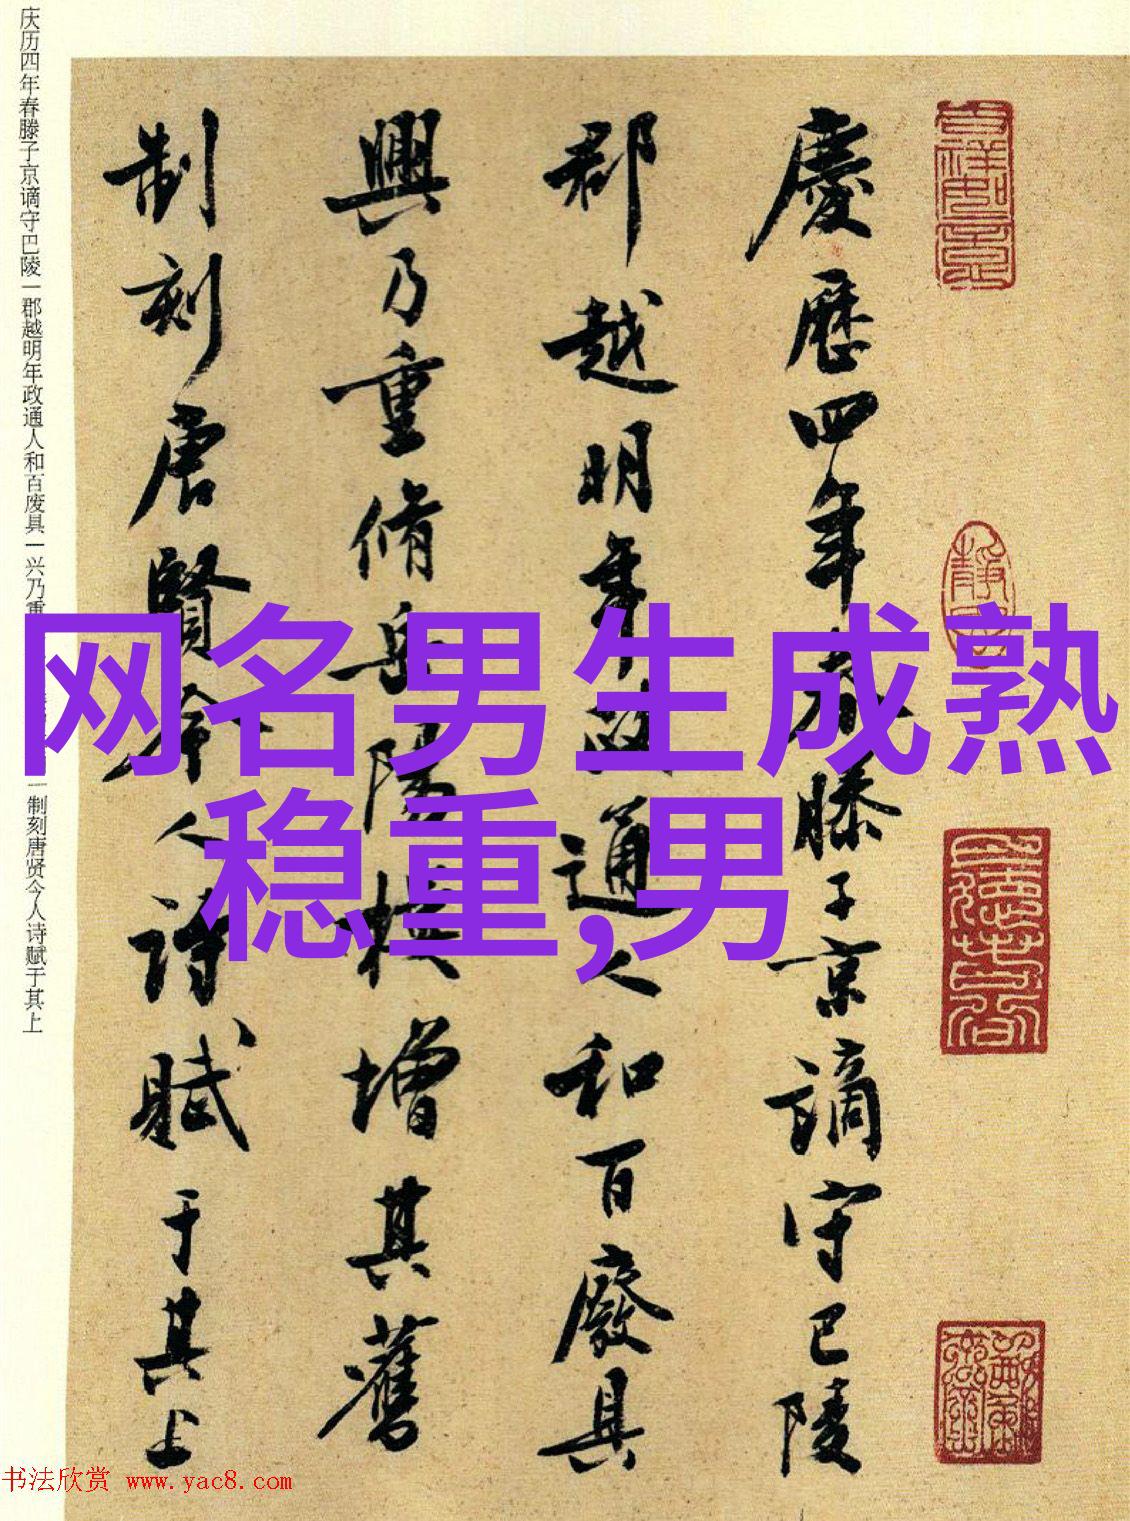 慶歷四年春滕子京謫守巴陵
郡越明年政通人和百廢具
興乃重脩岳陽樓增其舊
制刻唐賢今人詩賦于其上
庆历四年春滕子京谪守巴陵一郡越明年政通人和百废具一兴乃重
一制刻唐贤今人诗赋于其上
网名男生成熟
稳重,男
书法欣赏 www.yac8.com